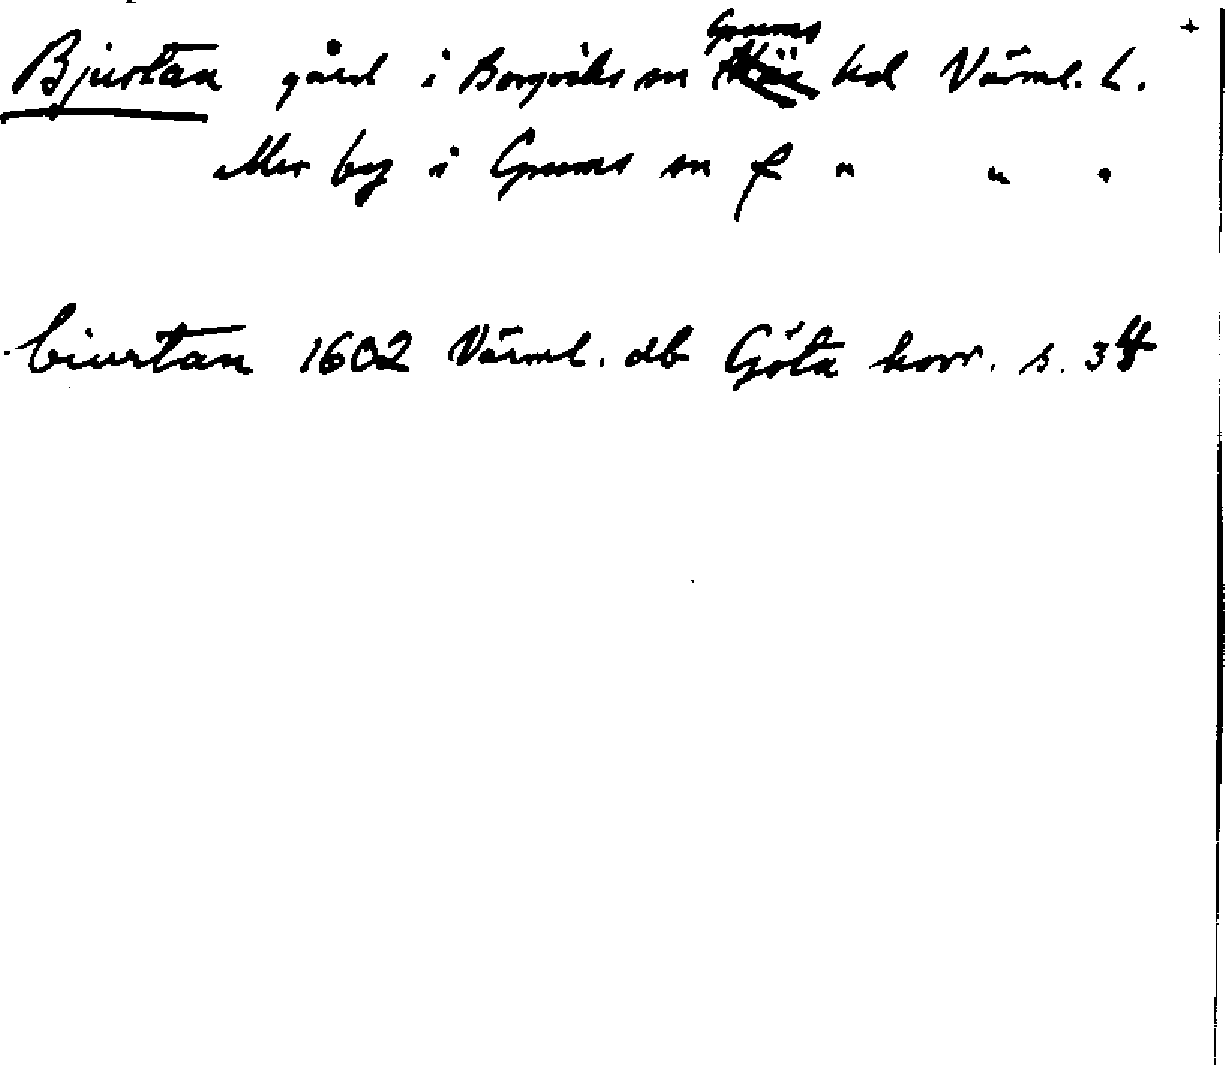 Bjurtan gård i Borgviks sn Grums hd Värml. L.
eller by i Grums sn " " "
biurtan 1602 Värml. db Göta hovr. s. 34